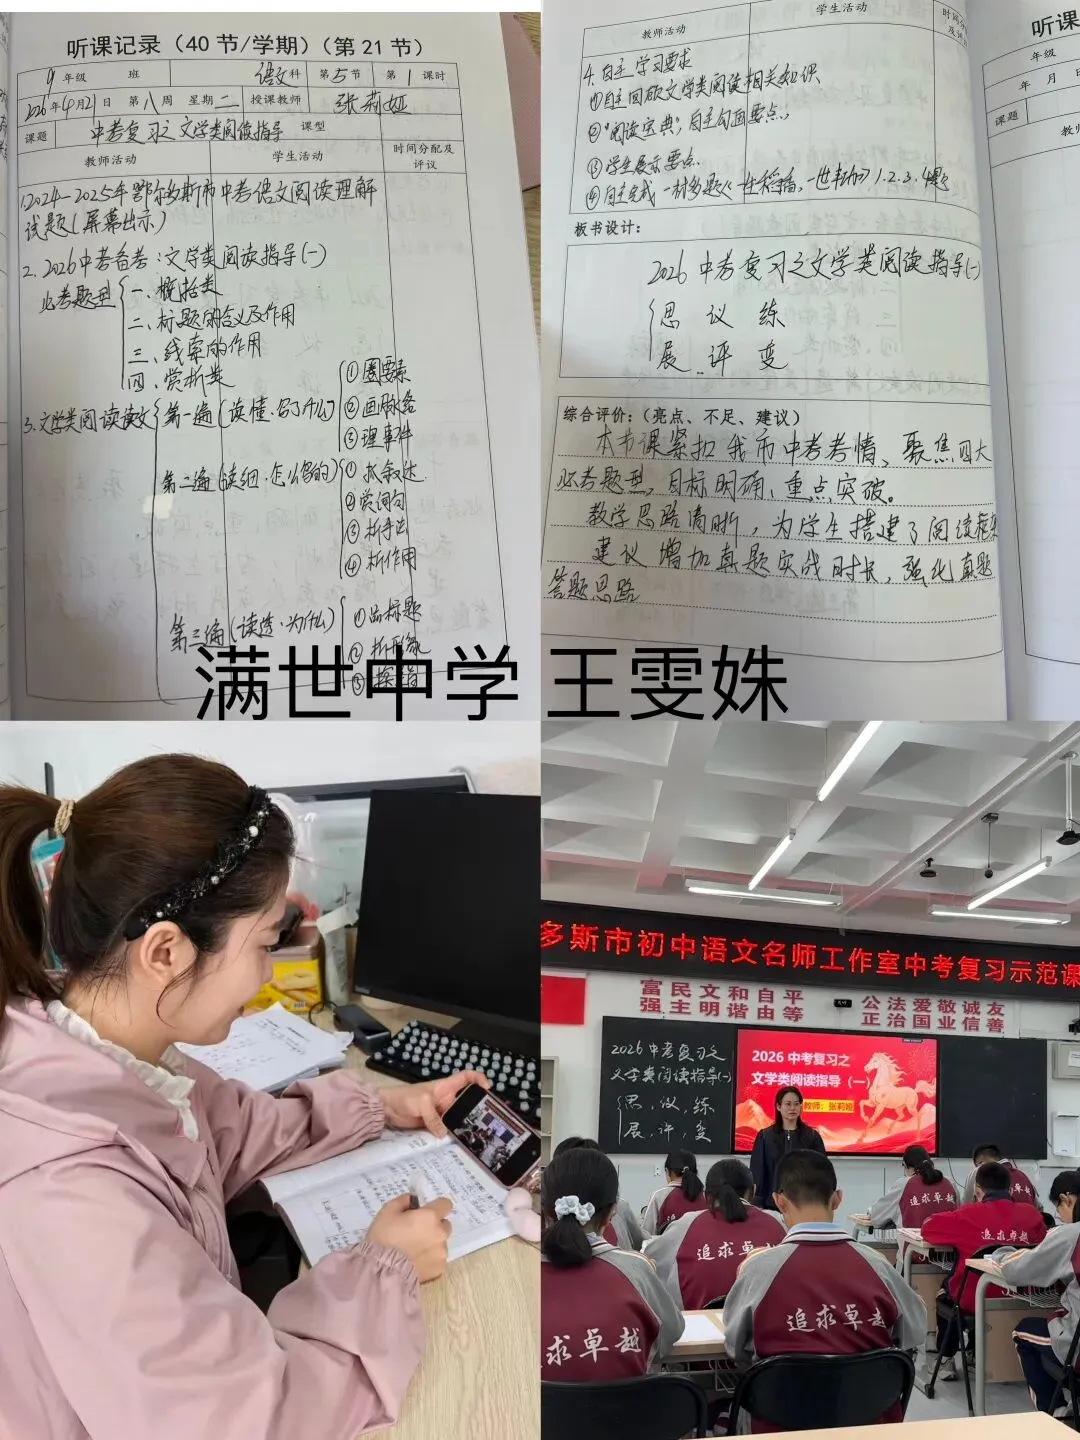 听课记录（40 节/学期）（第 21 节）
9 年级 班 语文科 第5节 第1课时
2026年4月21日 第八周 星期二 授课教师 张莉娅
课题 中考复习之文学类阅读指导 课型
教师活动 学生活动 时间分配及评议
1.2024-2025年鄂尔多斯市中考语文阅读理解
试题(屏幕出示)
2.2026中考备考:文学类阅读指导(一)
必考题型
一、概括类
二、标题的含义及作用
三、线索的作用
四、赏析类
3.文学类阅读读文
第一遍(读懂·写了什么)
①圈要素
②画脉络
③理事件
第二遍(读细·怎么写的)
①抓叙述
②赏词句
③析手法
④析作用
第三遍(读透·为什么)
①品标题
②析形象
③探主旨
教师活动 学生活动 时间分
4.自主学习要求
①自主回顾文学类阅读相关知识
②"阅读宝典",自主勾画要点,
③学生展示要点.
④自主完成一材多题《一生稻梧,一世耕》1.2.3.4题
板书设计:
2026中考复习之文学类阅读指导(一)
思 议 练
展 评 变
综合评价:(亮点、不足、建议)
本节课紧扣我市中考考情、聚焦四大
必考题型,目标明确,重点突破。
教学思路清晰,为学生搭建了阅读框架
建议增加真题实战时长,强化真题
答题思路
听课
年级
年 月 日
课题
满世中学 王雯姝
多斯市初中语文名师工作室中考复习示范课
富民文和自平
强主明谐由等
公法爱敬诚友
正治国业信善
2026中考复习之
文学类阅读指导(一)
思、议、练
展、评、变
2026 中考复习之
文学类阅读指导（一）
教师：张莉娅
追求卓越
追求卓越
追求卓越
追求卓越
追求卓越